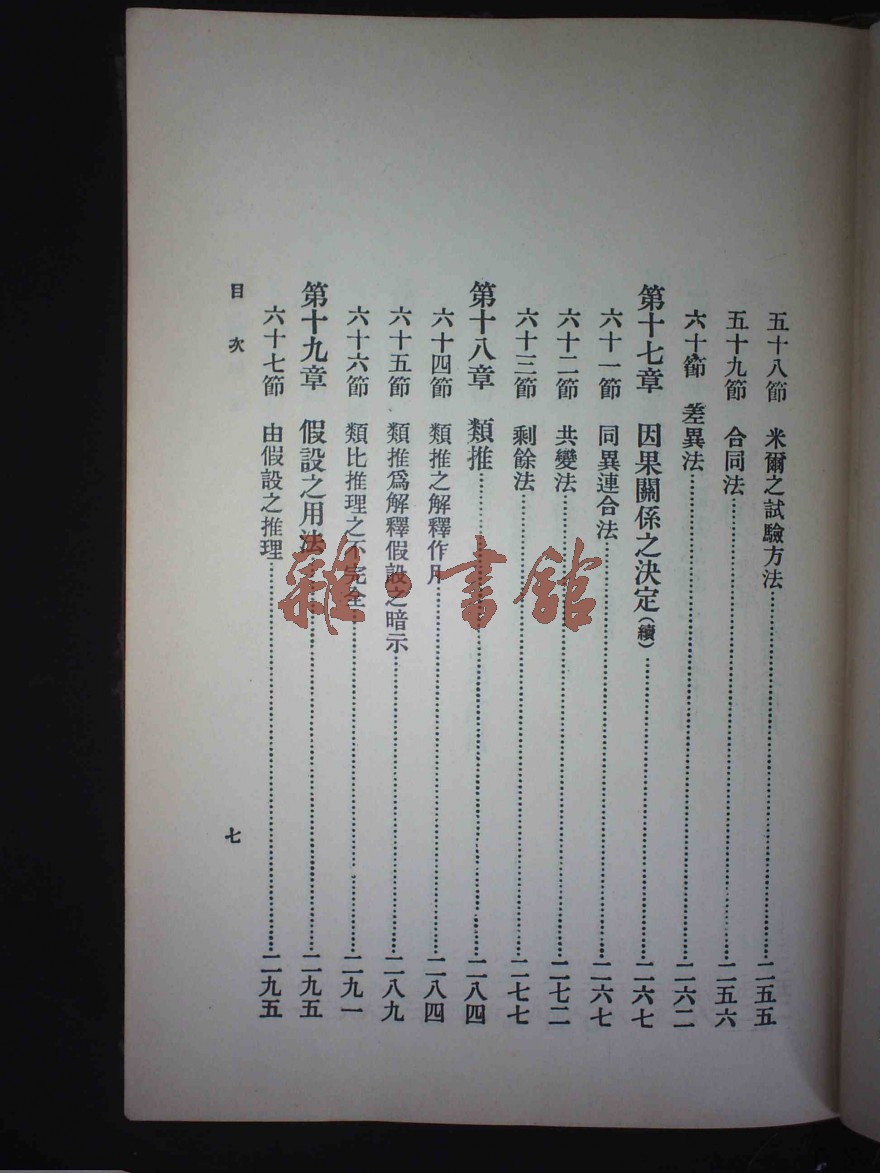 五十八節　米爾之試驗方法……二五五
五十九節　合同法……二五六
六十節　差異法……二六二
第十七章　因果關係之決定(續)……二六七
六十一節　同異連合法……二六七
六十二節　共變法……二七二
六十三節　剩餘法……二七七
第十八章　類推……二八四
六十四節　類推之解釋作用……二八四
六十五節　類推爲解釋假設之暗示……二八九
六十六節　類比推理之不完全……二九一
第十九章　假設之用法……二九五
六十七節　由假設之推理……二九五
目次　七
雜·書館